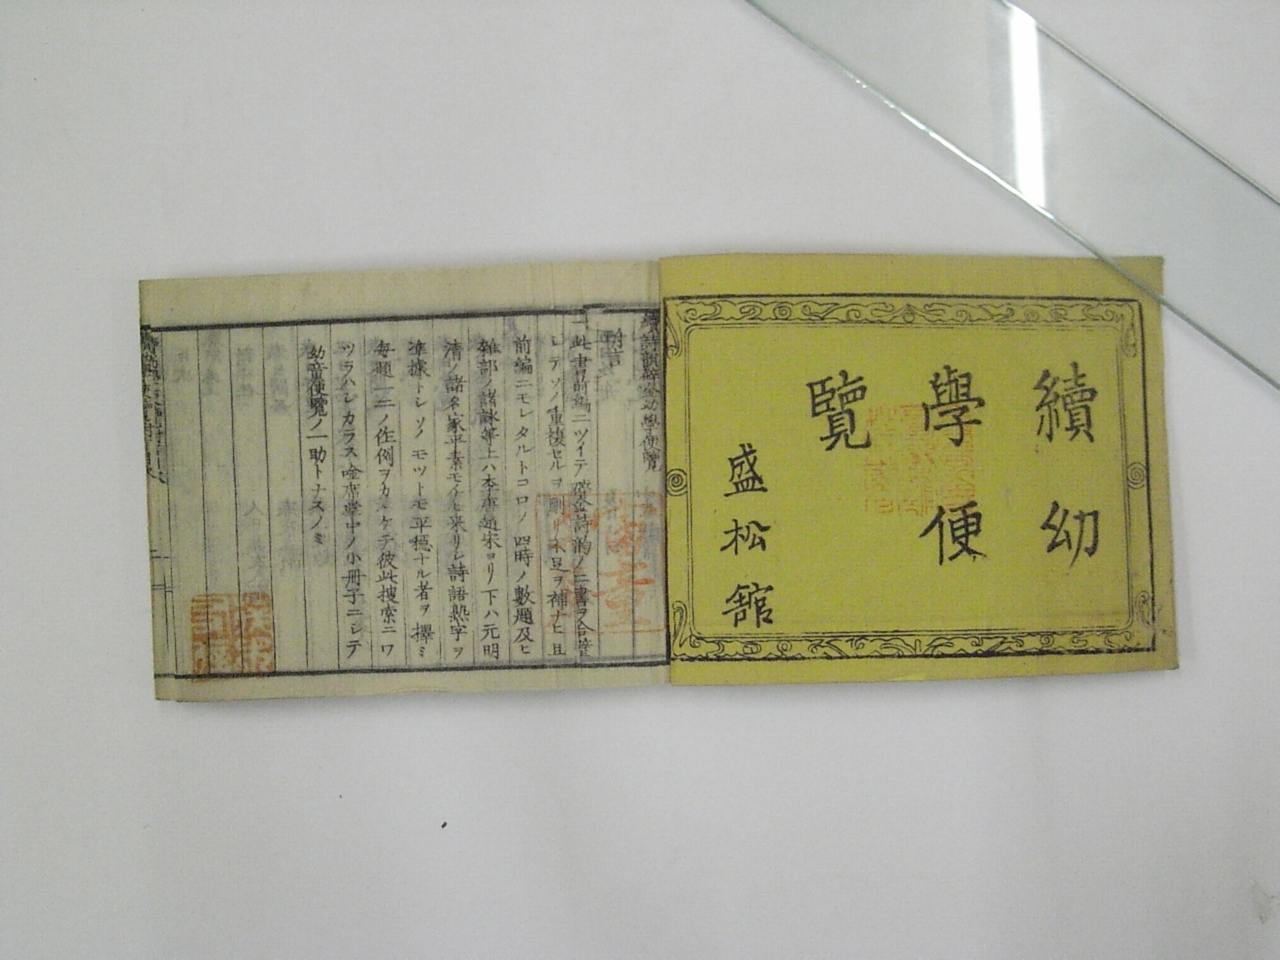 續幼
學便
覽
盛松館
附言
一此書前編ニツイテ
シテソノ重複セルヲ刪リ不足ヲ補ナヒ且
前編ニモレタルトコロノ四時ノ數題及ヒ
雜部ノ諸詠等上ハ李唐趙宋ヨリ下ハ元明
清ノ諸名家平素モチヒ来リシ詩語熟字ヲ
準據トシソノモツトモ平穏ナル者ヲ擇ミ
毎題一二ノ作例ヲカヽケテ彼此捜索ニワ
ツラハシカラス唫席嚢中ノ小冊子ニシテ
幼童便覽ノ一助トナスノミ